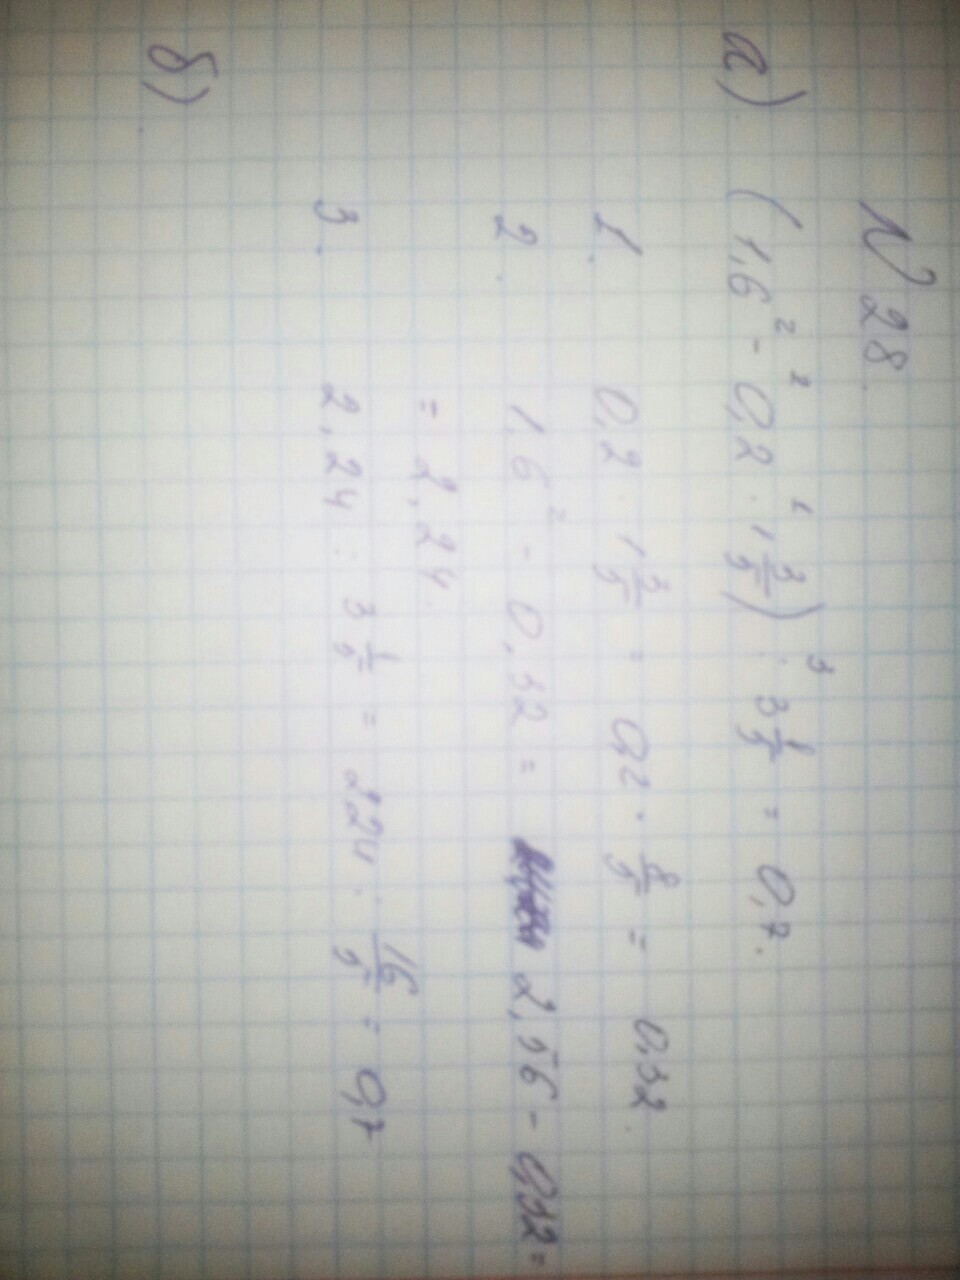 N 28.
а) (1,6² - 0,2 · 1 3/5) : 3 1/5 = 0,7.
1. 0,2 · 1 3/5 = 0,2 · 8/5 = 0,32.
2. 1,6² - 0,32 = 2,56 - 0,32 =
= 2,24.
3. 2,24 : 3 1/5 = 2,24 : 16/5 = 0,7
б)